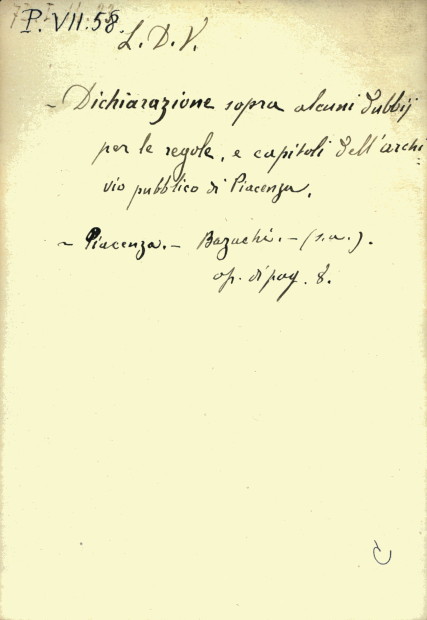 P. VII. 58.
L. D. V.
- Dichiarazione sopra alcuni dubbij
per le regole, e capitoli dell'archi
vio pubblico di Piacenza.
~ Piacenza. - Bazachi. - (s.a.).
op. di pag. 8.